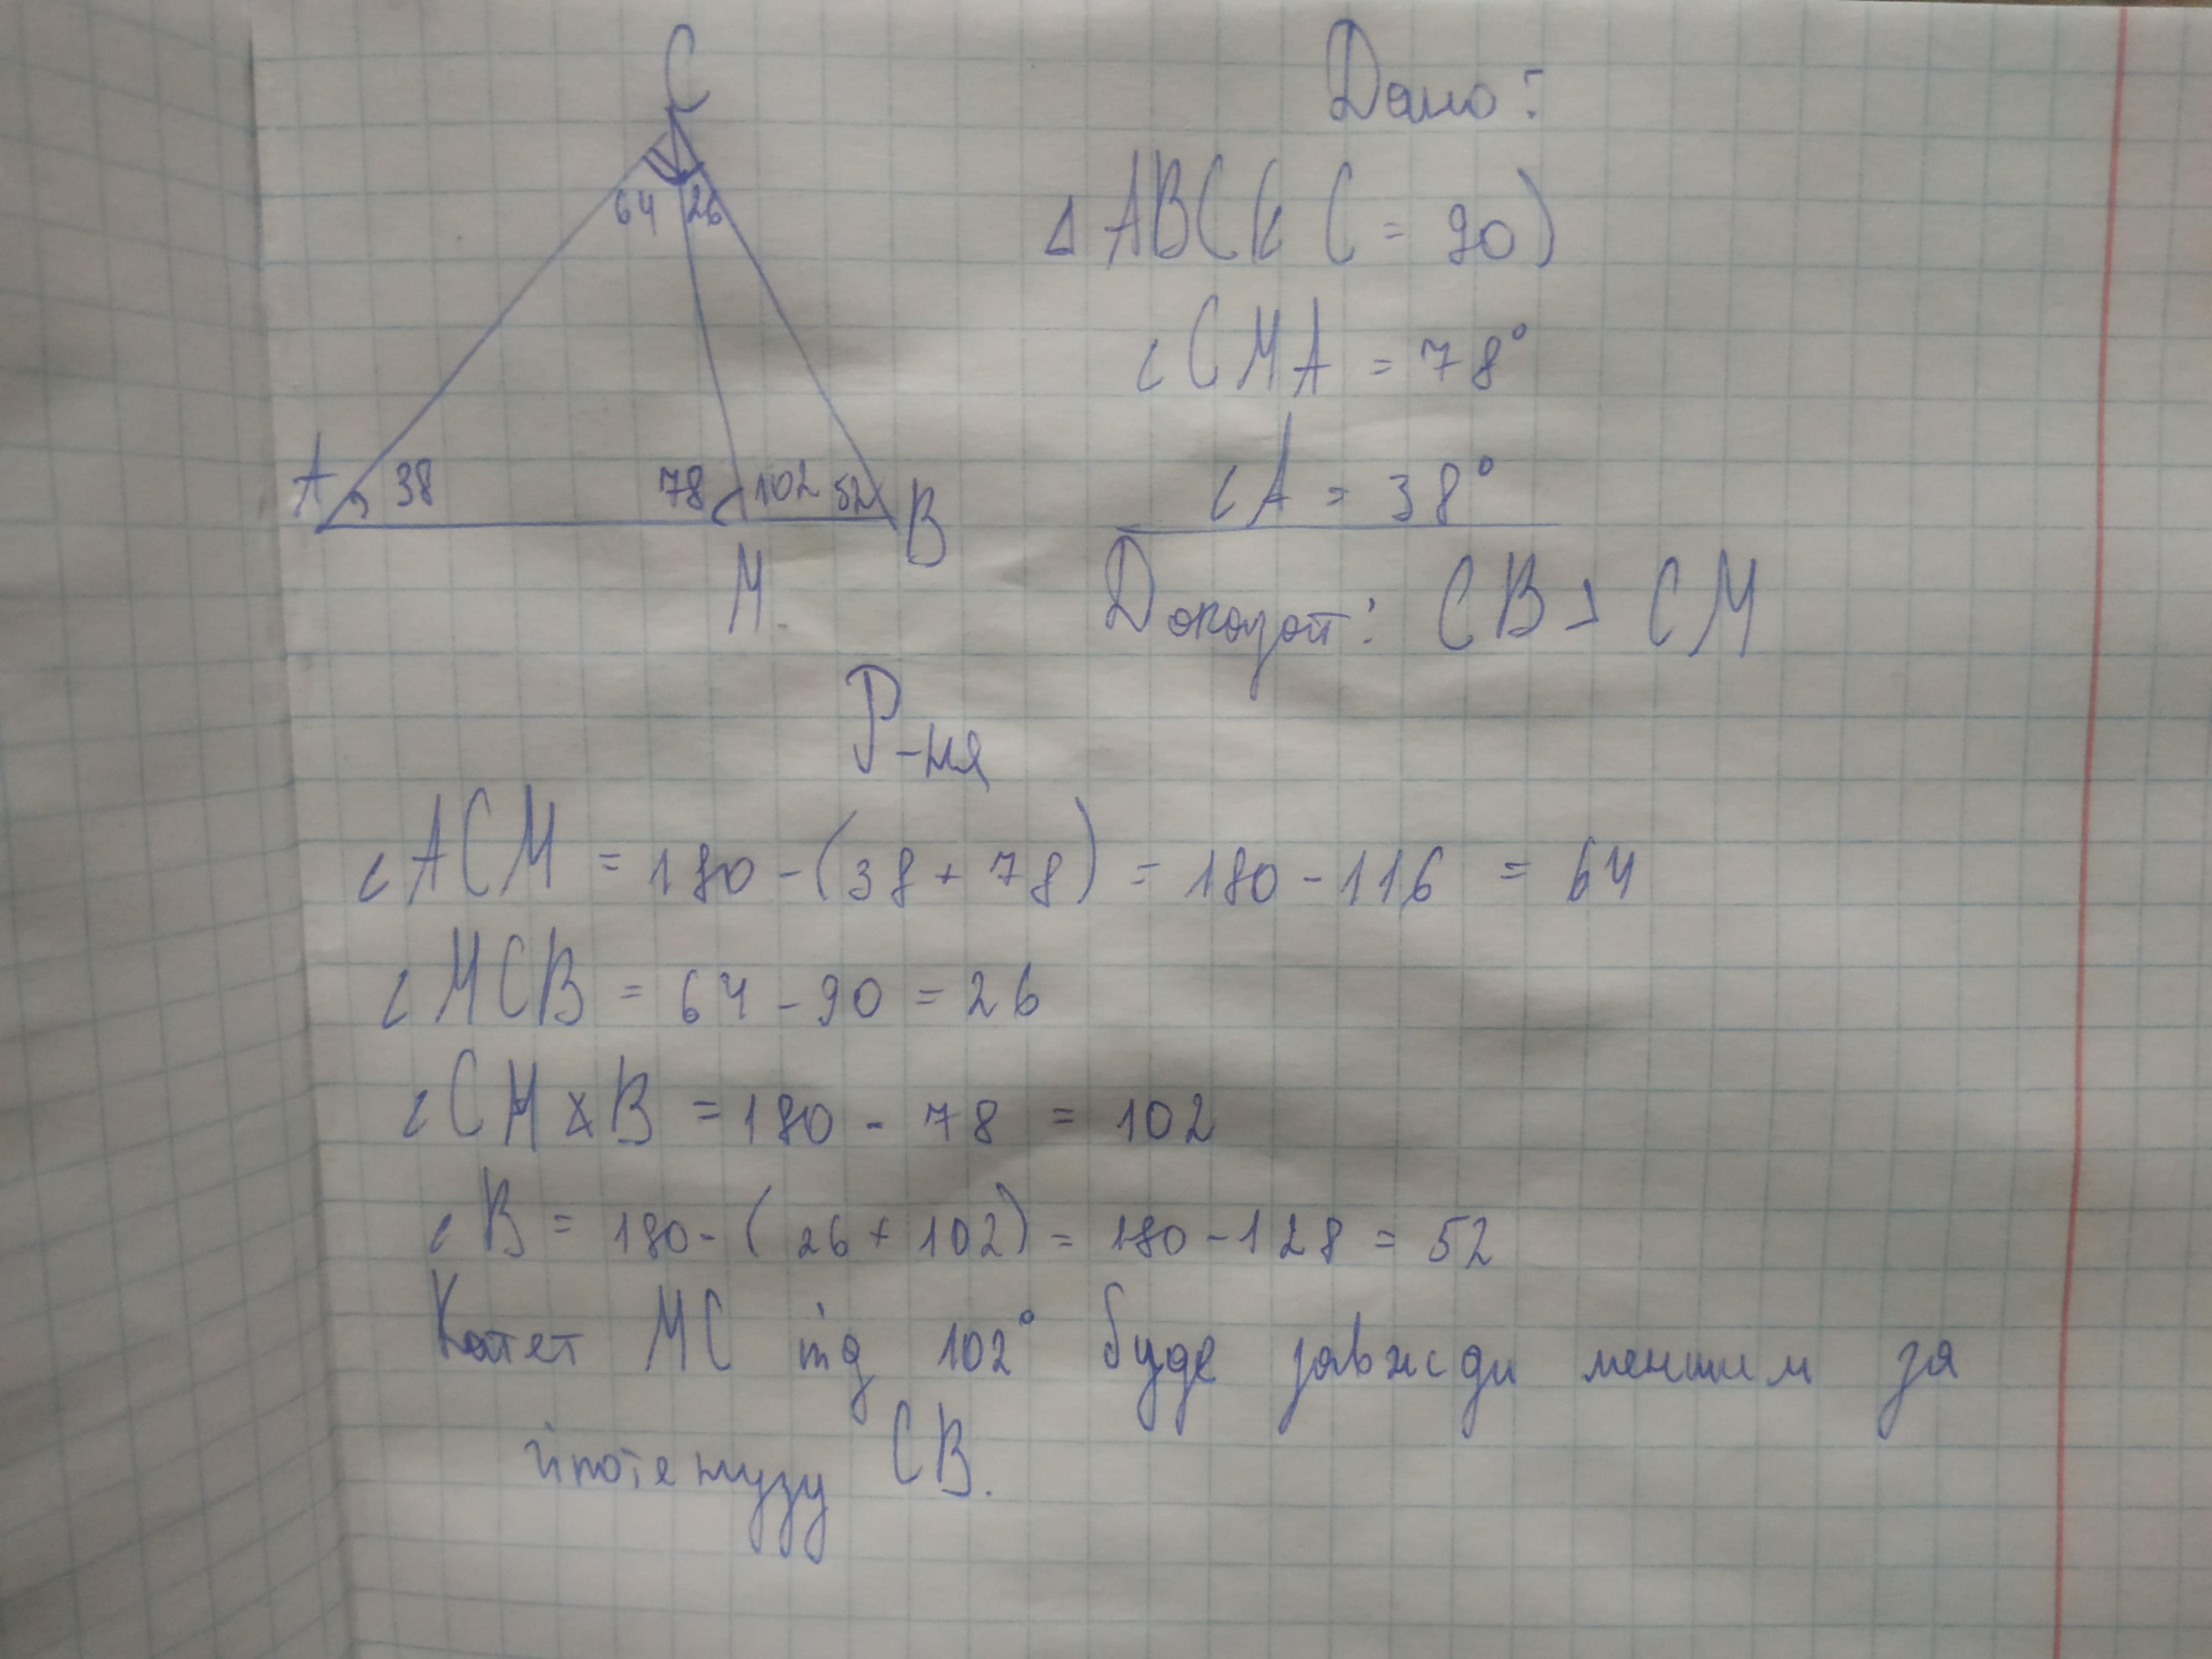 C
Дано:
64 26
△ ABC (∠ C = 90)
∠ CMA = 78°
A 38 78 102 52 B
∠ A = 38°
M.
Доказат: CB > CM
Р-ня
∠ ACM = 180 - (38 + 78) = 180 - 116 = 64
∠ MCB = 64 - 90 = 26
∠ CMB = 180 - 78 = 102
∠ B = 180 - (26 + 102) = 180 - 128 = 52
Катет MC під 102° буде завжди меншим за
гіпотенузу CB.